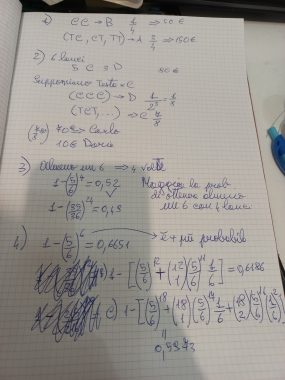 1) CC → B 1/4 ⇒ 50€
(TC, CT, TT) → A 3/4 ⇒ 150€
2) 6 lanci
5 C 3 D 80€
Supponiamo Testa = C
(CCC) → D 1/2³ = 1/8
(TCT, ...) → C 7/8
70€ → Carlo
10€ Dario
3) Otteniamo un 6 ⇒ 4 volte
1-(5/6)⁴ = 0,52 Maggiore la prob
1-(35/36)²⁴ = 0,49 di ottenere almeno
un 6 con 4 lanci
4) 1-(5/6)⁶ = 0,6651 → è + probabile
1-[(5/6)¹² + (12 1)(5/6)¹¹ 1/6] = 0,6186
1-[(5/6)¹⁸ + (18 1)(5/6)¹⁷ 1/6 + (18 2)(5/6)¹⁶ (1/6)²]
0,5973